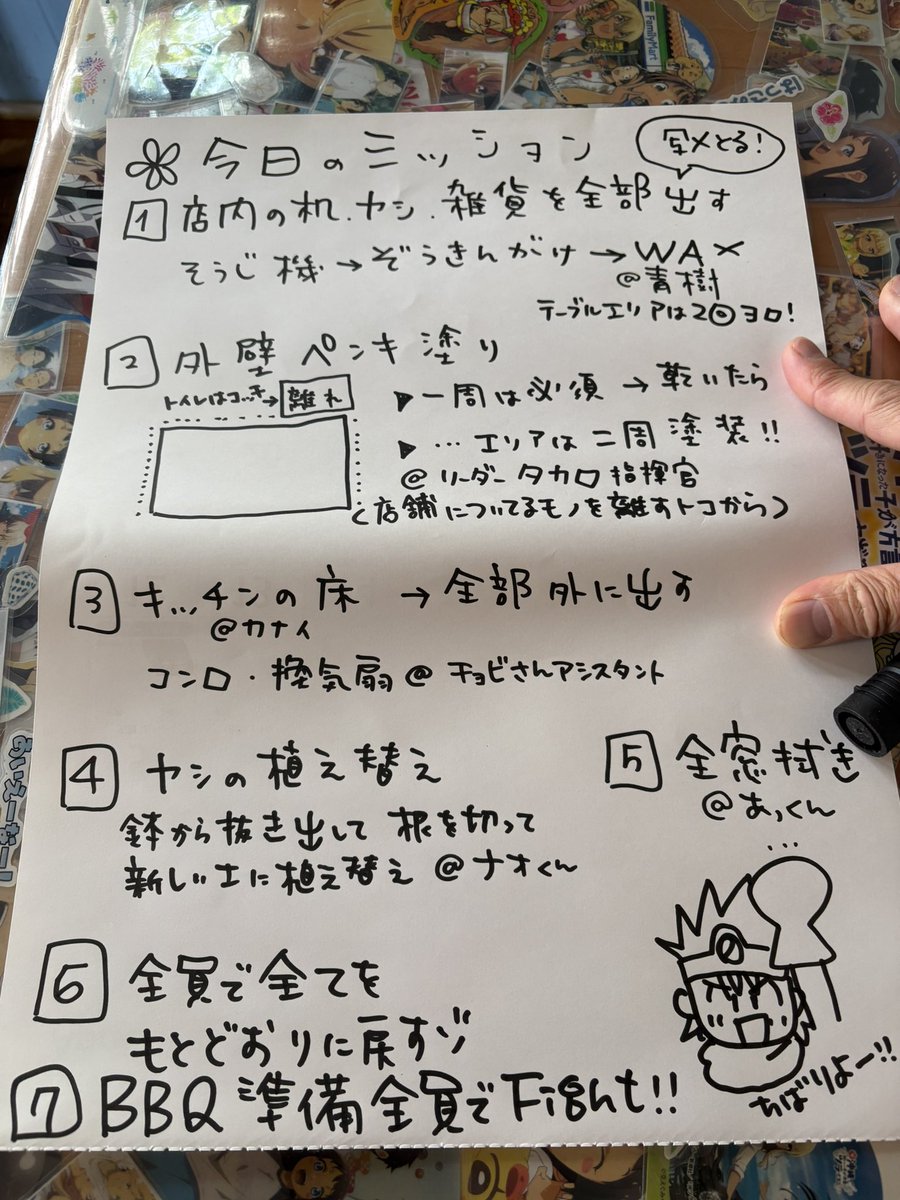 今日のミッション
写メとる!
1 店内の机.ヤシ.雑貨を全部出す
そうじ機→ぞうきんがけ→WAX
@青樹
テーブルエリアは2◎ヨロ!
2 外壁ペンキ塗り
トイレはコッチ→ 離れ
▶一周は必須→乾いたら
▶…エリアは二周塗装!!
@リーダータカロ指揮官
(店舗についてるモノを離すトコから)
3 キッチンの床→全部外に出す
@カナイ
コンロ・換気扇@チョビさんアシスタント
4 ヤシの植え替え
鉢から抜き出して根を切って
新しい土に植え替え@ナオくん
5 全窓拭き
@あっくん
6 全員で全てを
もとどおりに戻すゾ
ちばりよー!!
7 BBQ準備全員でFight!!
FamilyMart